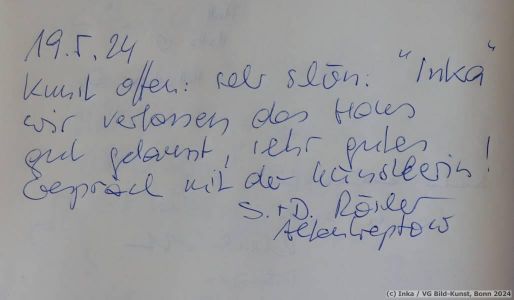 19.5.24
Kunst offen: sehr schön: "Inka"
wir verlassen das Haus
gut gelaunt, sehr gutes
Gespräch mit der Künstlerin!
S. + D. Rösler
Altentreptow
(c) Inka / VG Bild-Kunst, Bonn 2024